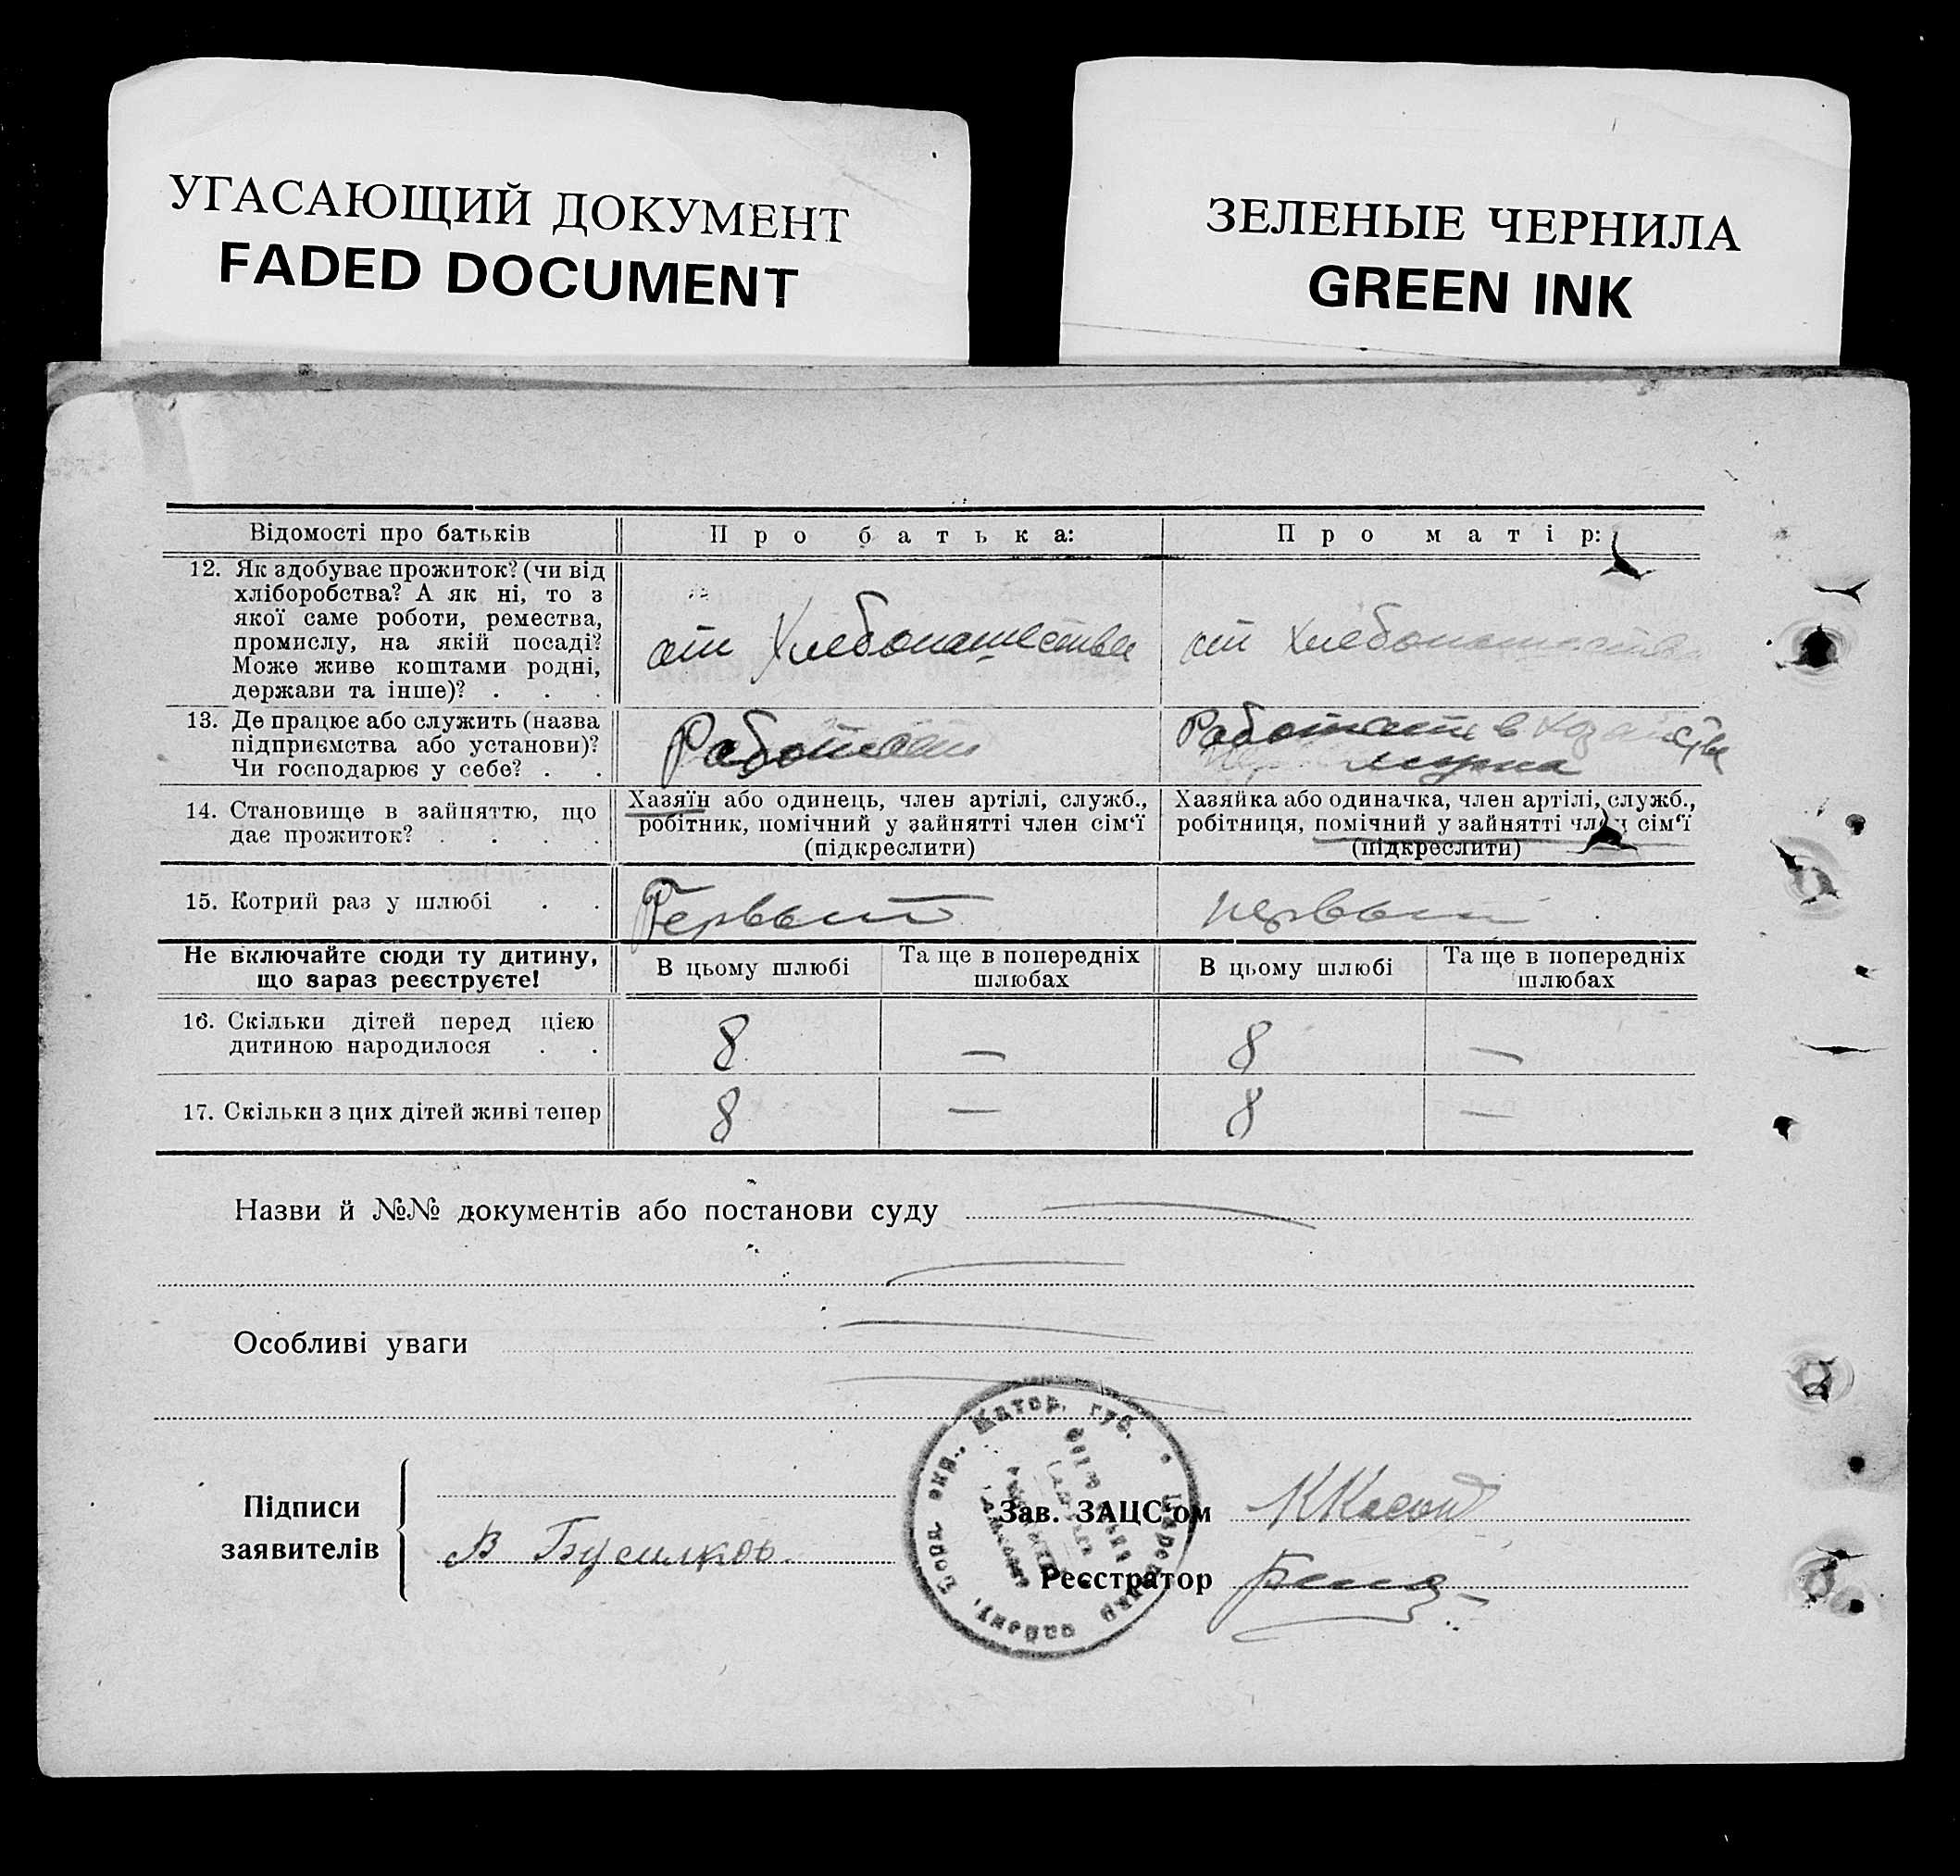 УГАСАЮЩИЙ ДОКУМЕНТ
FADED DOCUMENT
ЗЕЛЕНЫЕ ЧЕРНИЛА
GREEN INK
Відомості про батьків
Про батька:
Про матір:
12. Як здобуває прожиток? (чи від
хліборобства? А як ні, то з
якої саме роботи, ремества,
промислу, на якій посаді?
Може живе коштами родні,
держави та інше)? . . .
от Хлебопашества
от Хлебопашества
13. Де працює або служить (назва
підприємства або установи)?
Чи господарює у себе? . .
Работает
Работает в хозяйстве
мужа
14. Становище в зайняттю, що
дає прожиток? . . . .
Хазяїн або одинець, член артілі, служб.,
робітник, помічний у зайнятті член сім'ї
(підкреслити)
Хазяйка або одиначка, член артілі, служб.,
робітниця, помічний у зайнятті член сім'ї
(підкреслити)
15. Котрий раз у шлюбі . .
Первый
первый
Не включайте сюди ту дитину,
що зараз реєструєте!
В цьому шлюбі
Та ще в попередніх
шлюбах
В цьому шлюбі
Та ще в попередніх
шлюбах
16. Скільки дітей перед цією
дитиною народилося . .
8 — 8 —
17. Скільки з цих дітей живі тепер
8 — 8 —
Назви й №№ документів або постанови суду
Особливі уваги
Підписи
заявителів
В
Зав. ЗАЦС'ом
Реєстратор
Катер. губ.